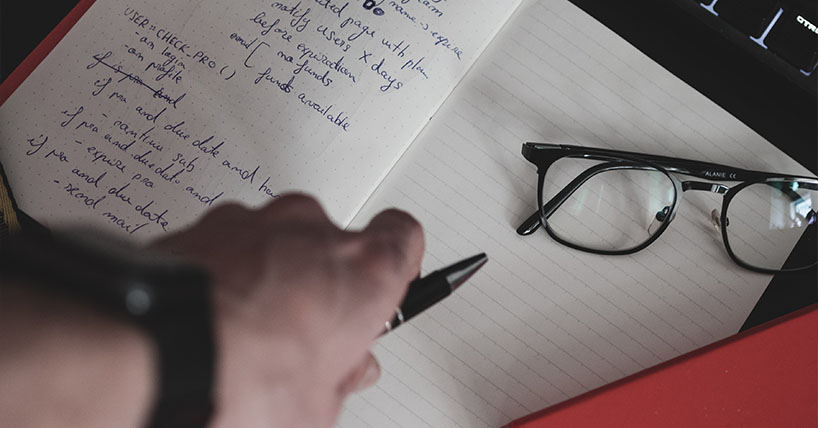 page with plan
notify users X days
before expiration
and [ no funds
funds available
USER::CHECK_PRO()
- on login
- on profile
if is pro and
if pro and due date and
- continue sub
if pro and due date and
- expire pro
if pro and due date
- send mail
name -> expire
ALANIE CE
CTRL